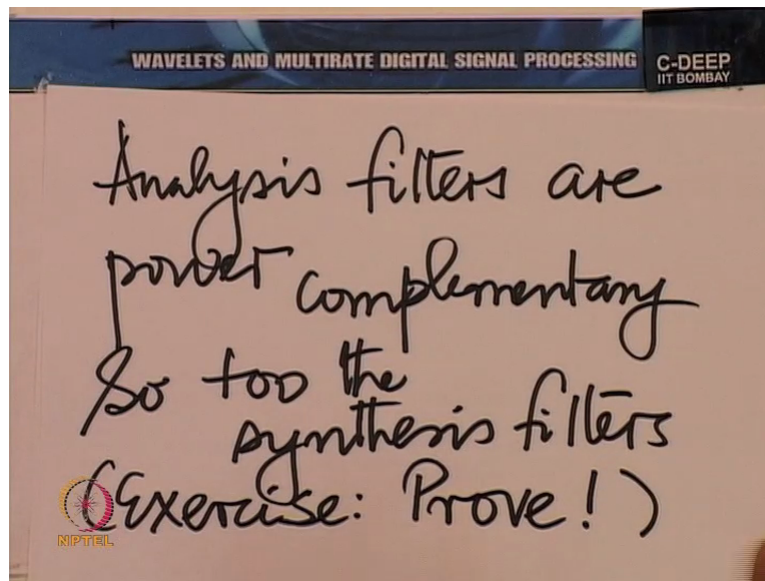 WAVELETS AND MULTIRATE DIGITAL SIGNAL PROCESSING
C-DEEP
IIT BOMBAY
Analysis filters are
power complementary
So too the
synthesis filters
(Exercise: Prove!)
NPTEL